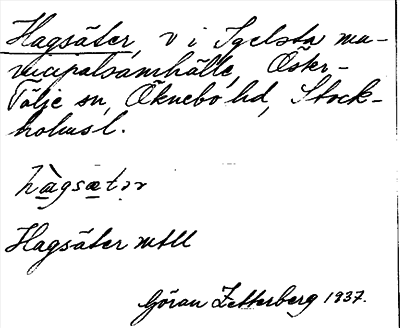 Hagsäter, v i Igelsta mu-
nicipalsamhälle, Öster-
Tälje sn, Öknebo hd, Stock-
holmsl.
hàgsætər
Hagsäter mtll
Göran Zetterberg 1937.